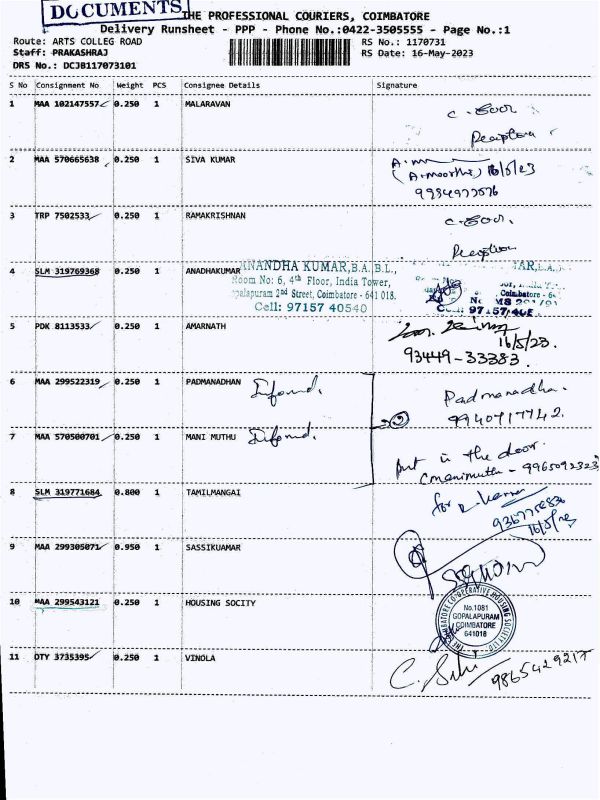 DOCUMENTS
THE PROFESSIONAL COURIERS, COIMBATORE
Delivery Runsheet - PPP - Phone No.:0422-3505555 - Page No.:1
Route: ARTS COLLEG ROAD RS No.: 1170731
Staff: PRAKASHRAJ RS Date: 16-May-2023
DRS No.: DCJB117073101
S No Consignment No Weight PCS Consignee Details Signature
1 MAA 102147557 0.250 1 MALARAVAN
2 MAA 570665638 0.250 1 SIVA KUMAR
16/5/23
3 TRP 7502533 0.250 1 RAMAKRISHNAN
4 SLM 319769368 0.250 1 ANADHAKUMAR
ANANDHA KUMAR, B.A. B.L.,
Room No: 6, 4th Floor, India Tower,
2nd Street, Coimbatore - 641 018.
Cell: 97157 40540
5 PDK 8113533 0.250 1 AMARNATH
16/5/23.
93449-33383
6 MAA 299522319 0.250 1 PADMANADHAN Infomd. Padmanadha.
9940717742.
7 MAA 570500701 0.250 1 MANI MUTHU Infomd. put in the door.
cmanimuthu - 9965092323
8 SLM 319771684 0.800 1 TAMILMANGAI for
16/5/23
9 MAA 299305071 0.950 1 SASSIKUAMAR
10 MAA 299543121 0.250 1 HOUSING SOCITY
No.1081
GOPALAPURAM
COIMBATORE
641018
11 DTY 3735395 0.250 1 VINOLA
9865429217